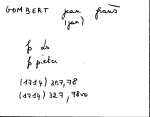 GOMBERT jean frans
(jan)
p Lo
p pieter
(1714) 327, 78
(1714) 327, 78vo